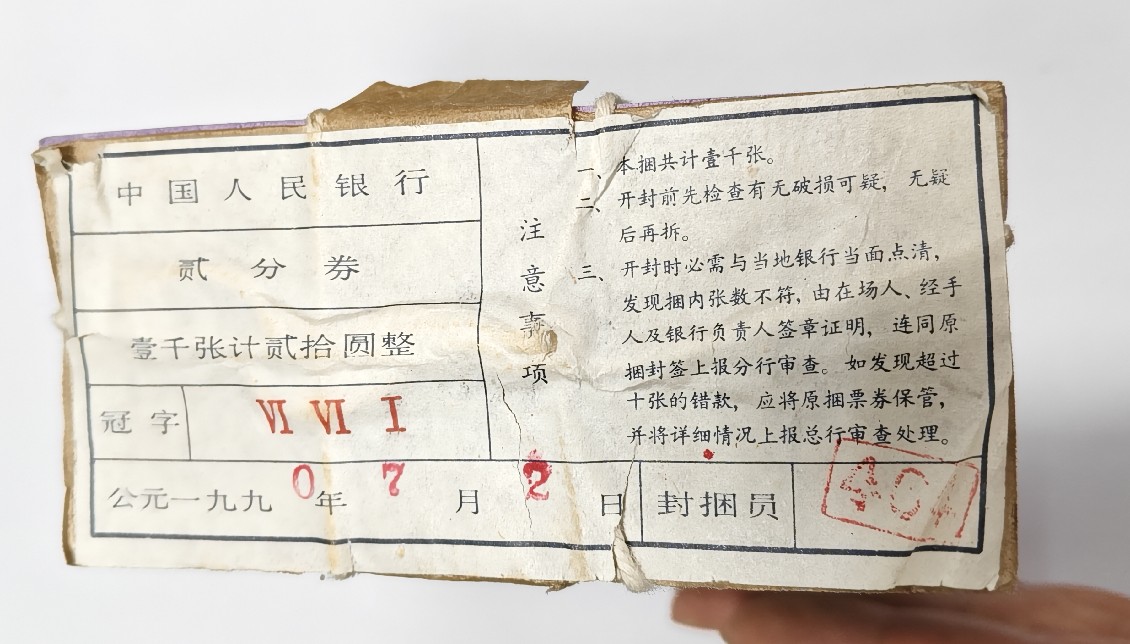 中国人民银行
贰分券
壹千张计贰拾圆整
冠字 VI VI I
公元一九九0年 7月 2日
注意事项
一、本捆共计壹千张。
二、开封前先检查有无破损可疑，无疑
后再拆。
三、开封时必需与当地银行当面点清，
发现捆内张数不符，由在场人、经手
人及银行负责人签章证明，连同原
捆封签上报分行审查。如发现超过
十张的错款，应将原捆票券保管，
并将详细情况上报总行审查处理。
封捆员